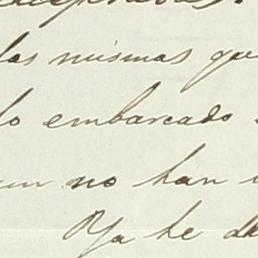 las mismas que
lo embarcado
un no han
Ya he de